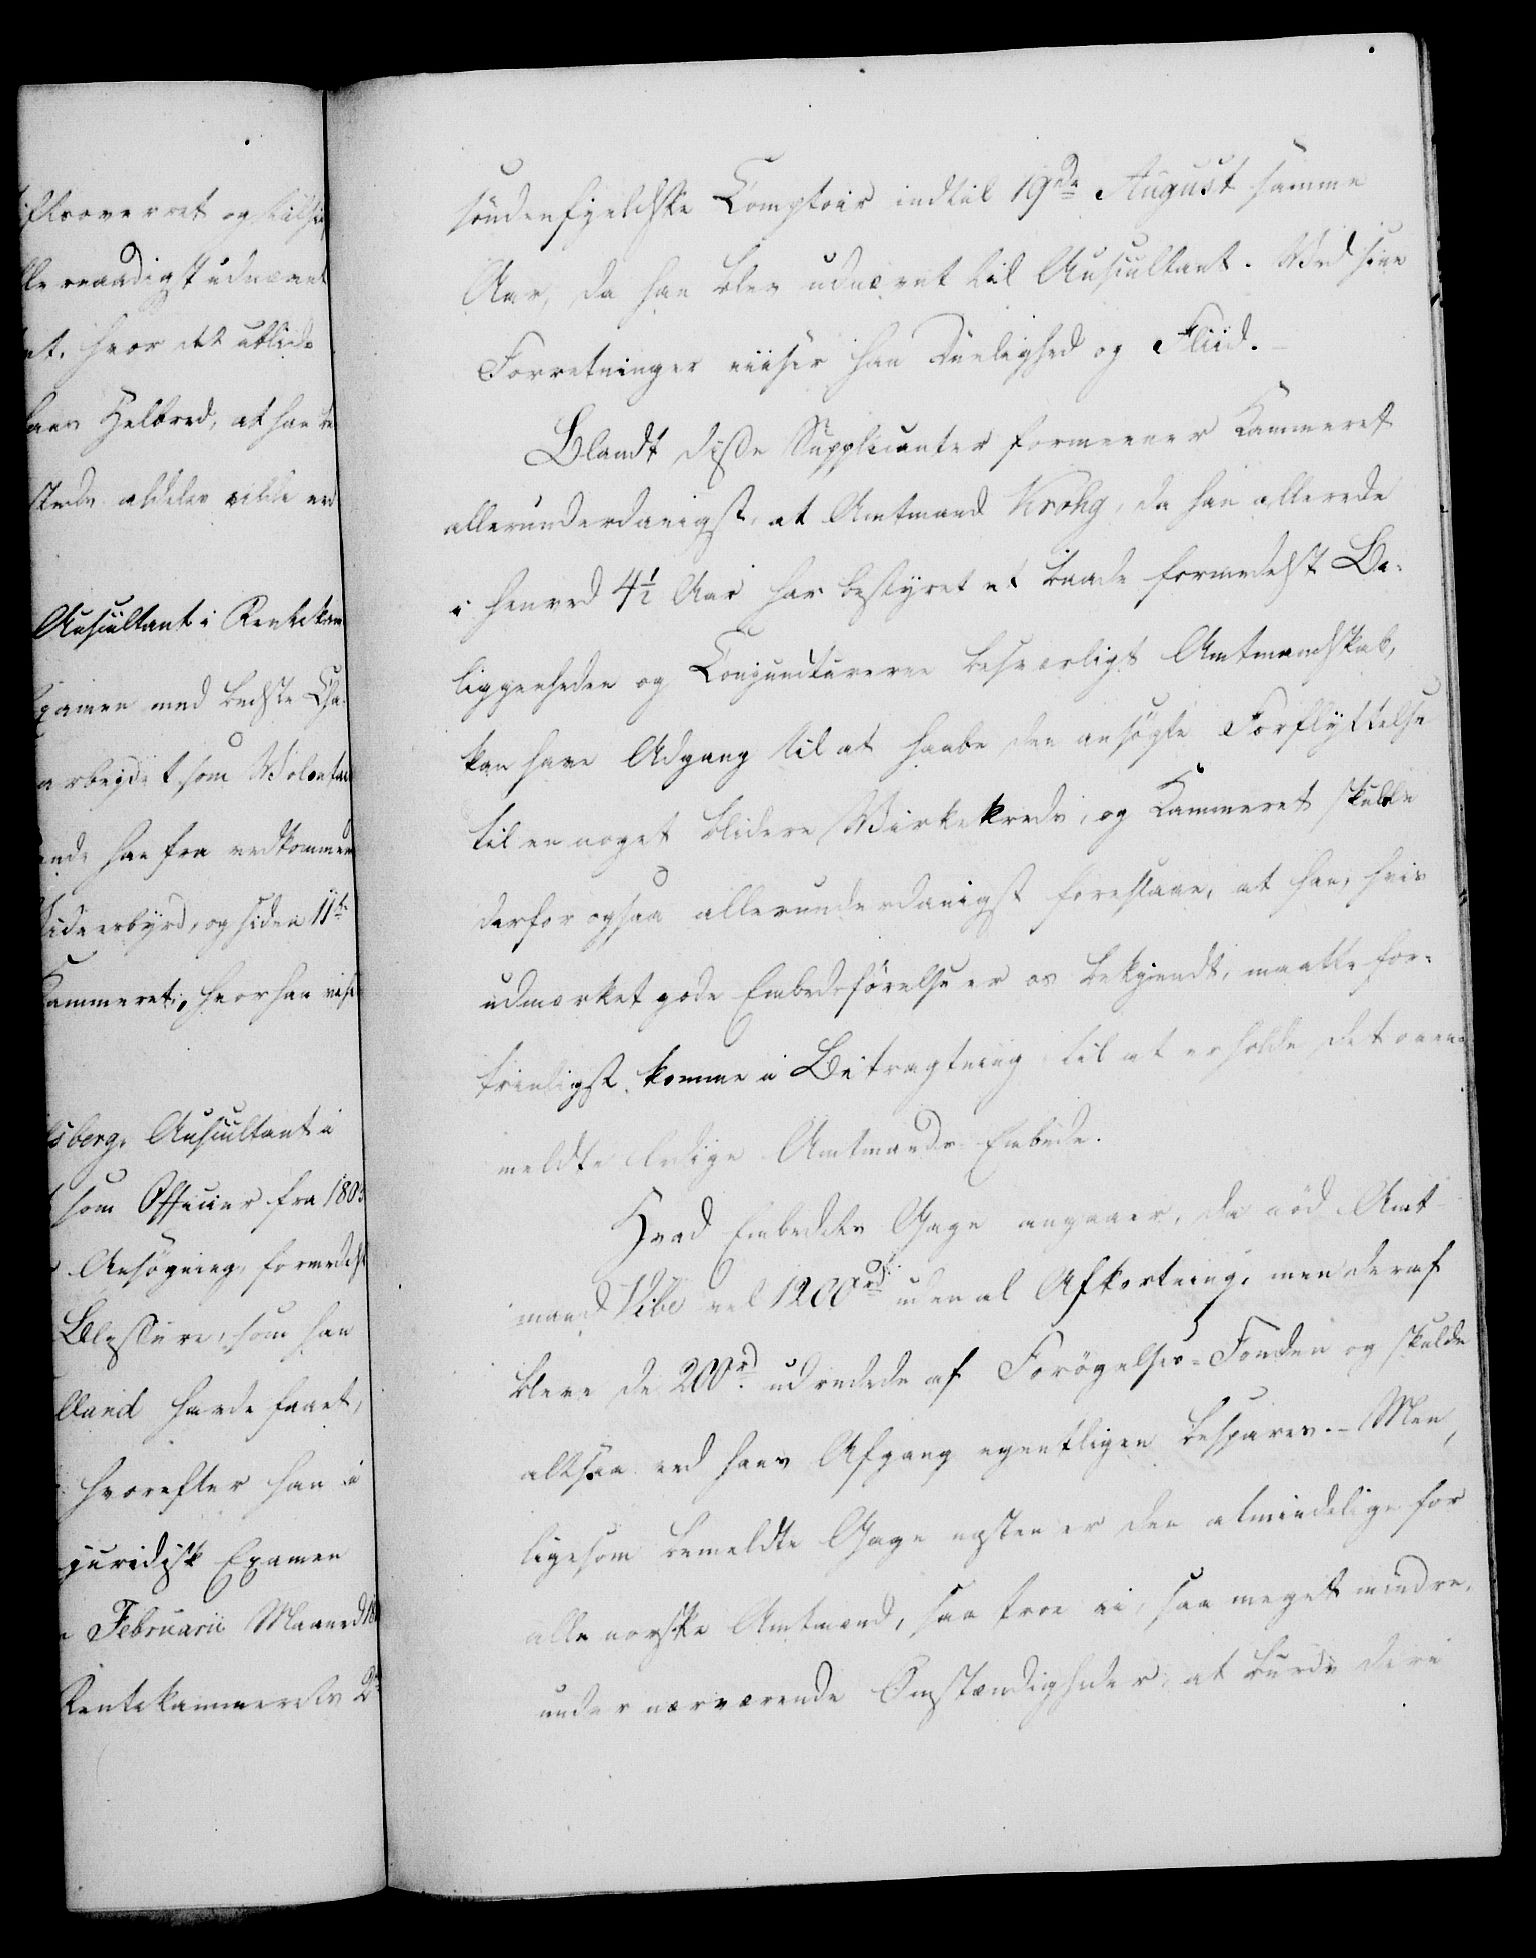 floverret og tilsi
lle naadigst udnævnt
et, hvor det ublide
hans Helbred, at han
steds aldeles vilde
Auscultant i Rentekam
Examen med bedste Cha-
arbeydet som Volontai
ende han fra vedkommen
Vidnesbyrd, og siden 11te
Kammeret, hvor han vis
sberg, Auscultant i
som Officier fra 1803
Ansøgning, formedelst
Blessure, som han
lland havde faaet,
hvorefter han i
juridisk Examen
Februarii Maaned 18
Rentekammerets 2
söndenfjeldske Comptoir indtil 19de August samme
Aar, da han blev udnævnt til Auscultant. Ved sine
Forretninger viiser han Duelighed og Fliid. –
Blandt disse Supplicanter formeener Kammeret
allerunderdanigst, at Amtmand Krohg, da han allerede
i henved 4½ Aar har bestyret et baade formedelst Be-
liggenheden og Conjuncturerne besværligt Amtmandskab,
kan have Adgang til at haabe den ansögte Forflyttelse
til en noget blidere Virkekreds, og Kammeret skulle
derfor ogsaa allerunderdanigst foreslaae, at han, hvis
udmærket gode Embedsförelse er os bekjendt, maatte for-
trinligst komme i Betragtning til at erholde det oven-
meldte ledige Amtmands Embede.
Hvad Embedets Gage angaaer, da nöd Amt-
mand Vibe vel 1200rd uden al Afkortning, men deraf
bleve de 200rd udredede af Forögelses-Fonden og skulde
altsaa ved hans Afgang egentligen bespares. – Men,
ligesom bemeldte Gage næsten er den almindelige for
alle norske Amtmænd, saa troe vi, saa meget mindre,
under nærværende Omstændigheder, at burde deri